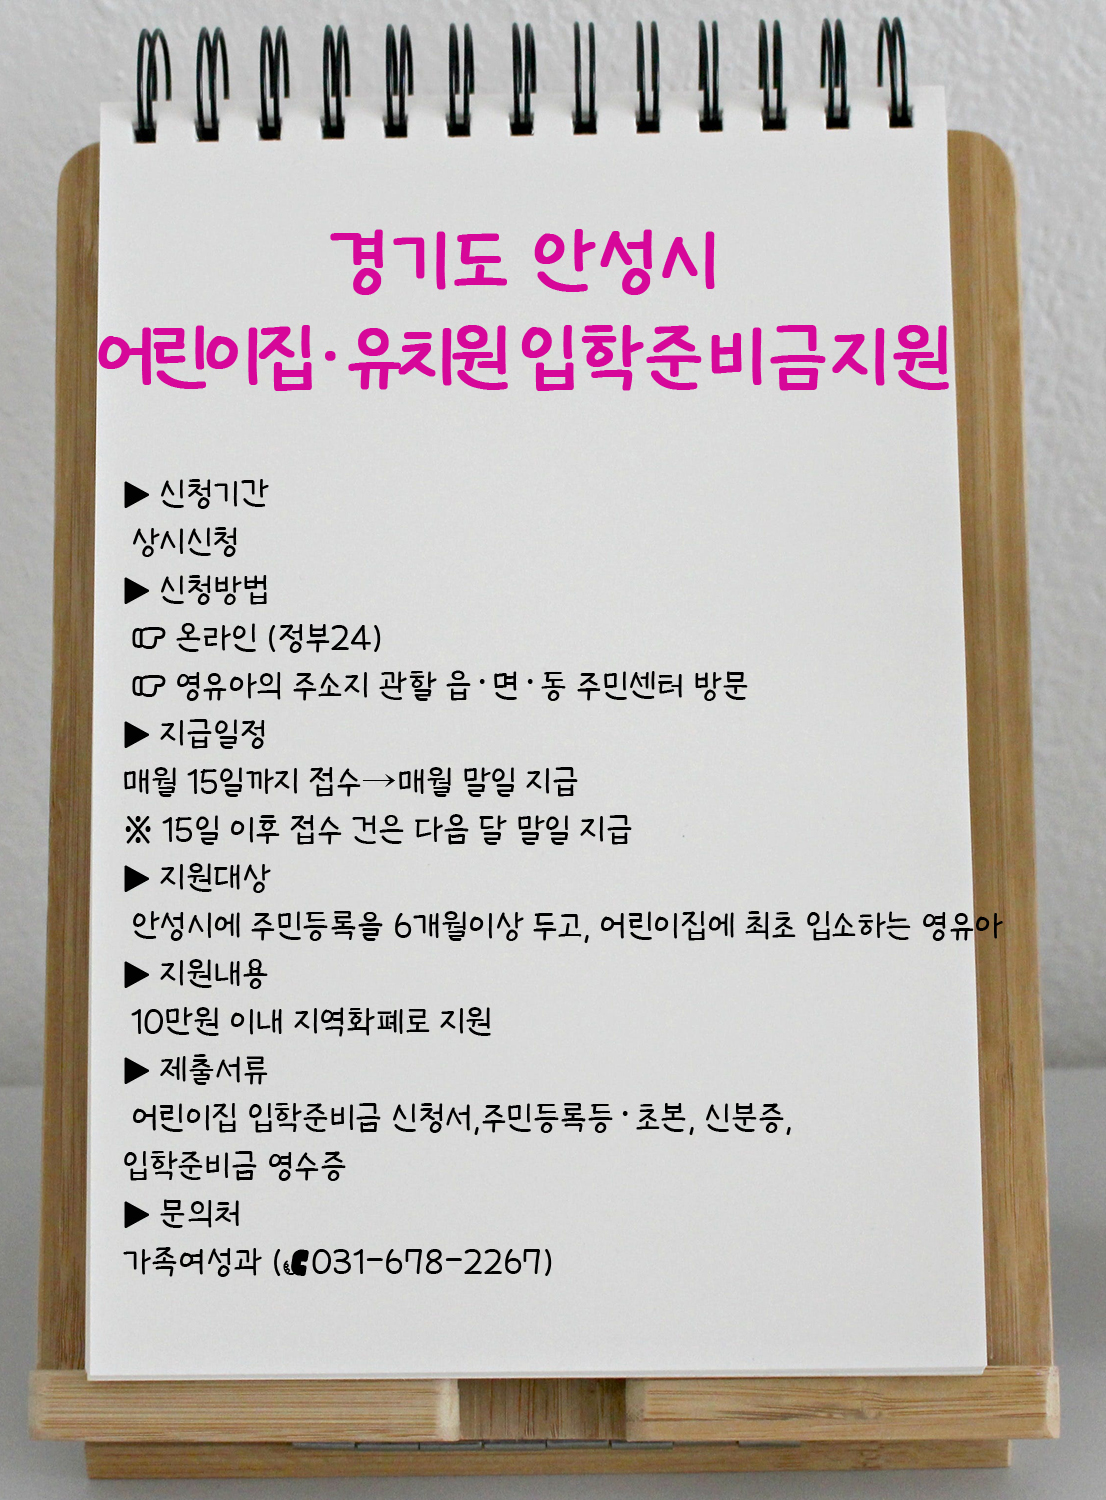 경기도 안성시
어린이집·유치원 입학준비금지원
▶ 신청기간
상시신청
▶ 신청방법
👉 온라인 (정부24)
👉 영유아의 주소지 관할 읍·면·동 주민센터 방문
▶ 지급일정
매월 15일까지 접수→매월 말일 지급
※ 15일 이후 접수 건은 다음 달 말일 지급
▶ 지원대상
안성시에 주민등록을 6개월이상 두고, 어린이집에 최초 입소하는 영유아
▶ 지원내용
10만원 이내 지역화폐로 지원
▶ 제출서류
어린이집 입학준비금 신청서,주민등록등·초본, 신분증,
입학준비금 영수증
▶ 문의처
가족여성과 (📞031-678-2267)